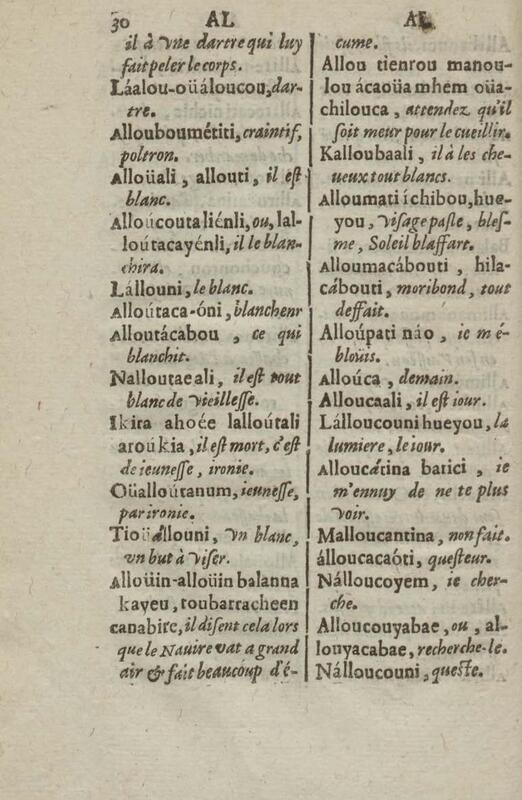 30 AL AL
il à vne dartre qui luy
fait peler le corps.
Láalou-oüáloucou, dar-
tre.
Allouboumétiti, craintif,
poltron.
Alloüali, allouti, il est
blanc.
Alloúcoutaliénli, ou, lal-
loútacayénli, il le blan-
chira.
Lállouni, le blanc.
Alloútaca-óni, blanchenr
Alloutácabou, ce qui
blanchit.
Nalloutaeali, il est tout
blanc de vieillesse.
Ikira ahoée lalloútali
aroukia, il est mort, c'est
de ieunesse, ironie.
Oüalloútanum, ieunesse,
par ironie.
Tioüállouni, vn blanc,
vn but à viser.
Alloüin-alloüin balanna
kayeu, toubarracheen
canabire, il disent cela lors
que le Nauire vat a grand
air & fait beaucoup d'é-
cume.
Allou tienrou manou-
lou ácaoüa mhem oüa-
chilouca, attendez qu'il
soit meur pour le cueillir.
Kalloubaali, il à les che-
ueux tout blancs.
Alloumati íchibou, hue-
you, visage pasle, bles-
me, Soleil blaffart.
Alloumacábouti, hila-
cábouti, moribond, tout
deffait.
Alloúpati náo, ie m'é-
bloüis.
Alloúca, demain.
Alloucaali, il est iour.
Lálloucouni hueyou, la
lumiere, le iour.
Alloucátina barici, ie
m'ennuy de ne te plus
voir.
Malloucantina, non fait.
álloucacaóti, questeur.
Nálloucoyem, ie cher-
che.
Alloucouyabae, ou, al-
louyacabae, recherche-le.
Nálloucouni, queste.